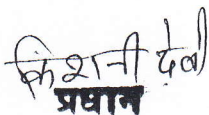 किशनी देवी
प्रधान